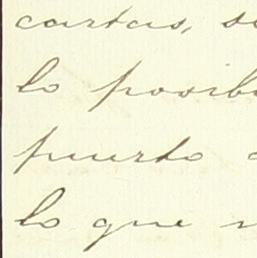 cartas, se
lo posib
puerto
lo que